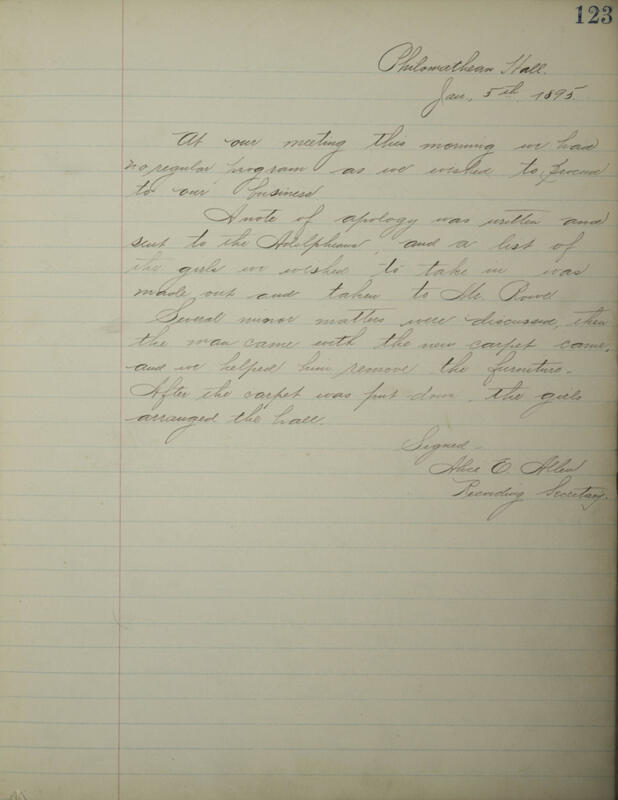 123
Philomathean Hall.
Jan, 5th 1895
At our meeting this morning we had
no regular program as we wished to proceed
to our business
A note of apology was written and
sent to the Adelpheans, and a list of
the girls we wished to take in was
made out and taken to Mr. Rowe
Several minor matters were discussed, then
the man came with the new carpet came,
and we helped him remove the furniture.
After the carpet was put down the girls
arranged the hall.
Signed -
Alice E. Allen
Recording Secretary.